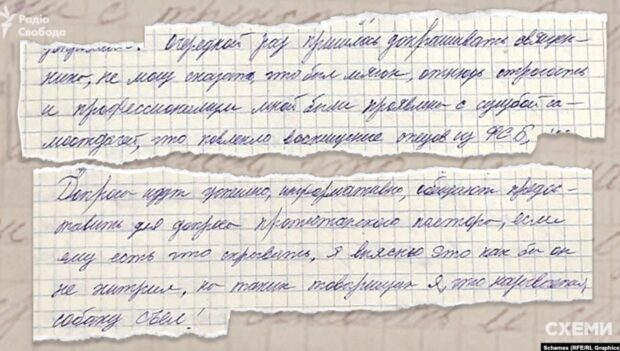 Радіо
Свобода
Очередной раз пришлось допрашивать священ-
ника, не могу сказать, что был мягок, отнюдь строгость
и профессионализм мной были проявлены с сугубой са-
моотдачей, что повлекло восхищение отцов из ФСБ,
Допросы идут успешно, информативно, обещают предос-
тавить для допроса протестантского пастора, если
ему есть что скрывать, я выясню это как бы он
не хитрил, на таких товарищах я, что называется,
собаку съел!
СХЕМИ
Schemes (RFE/RL Graphics)